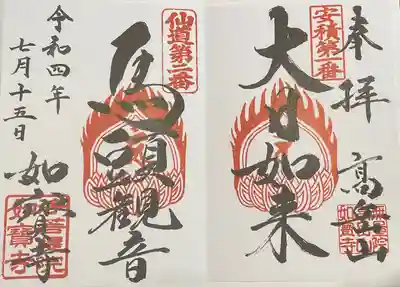 奉拝
高岳山
安積第一番
大日如来
如寶寺
仙道第二番
馬頭觀音
令和四年
七月十五日
如寶寺
如寶寺